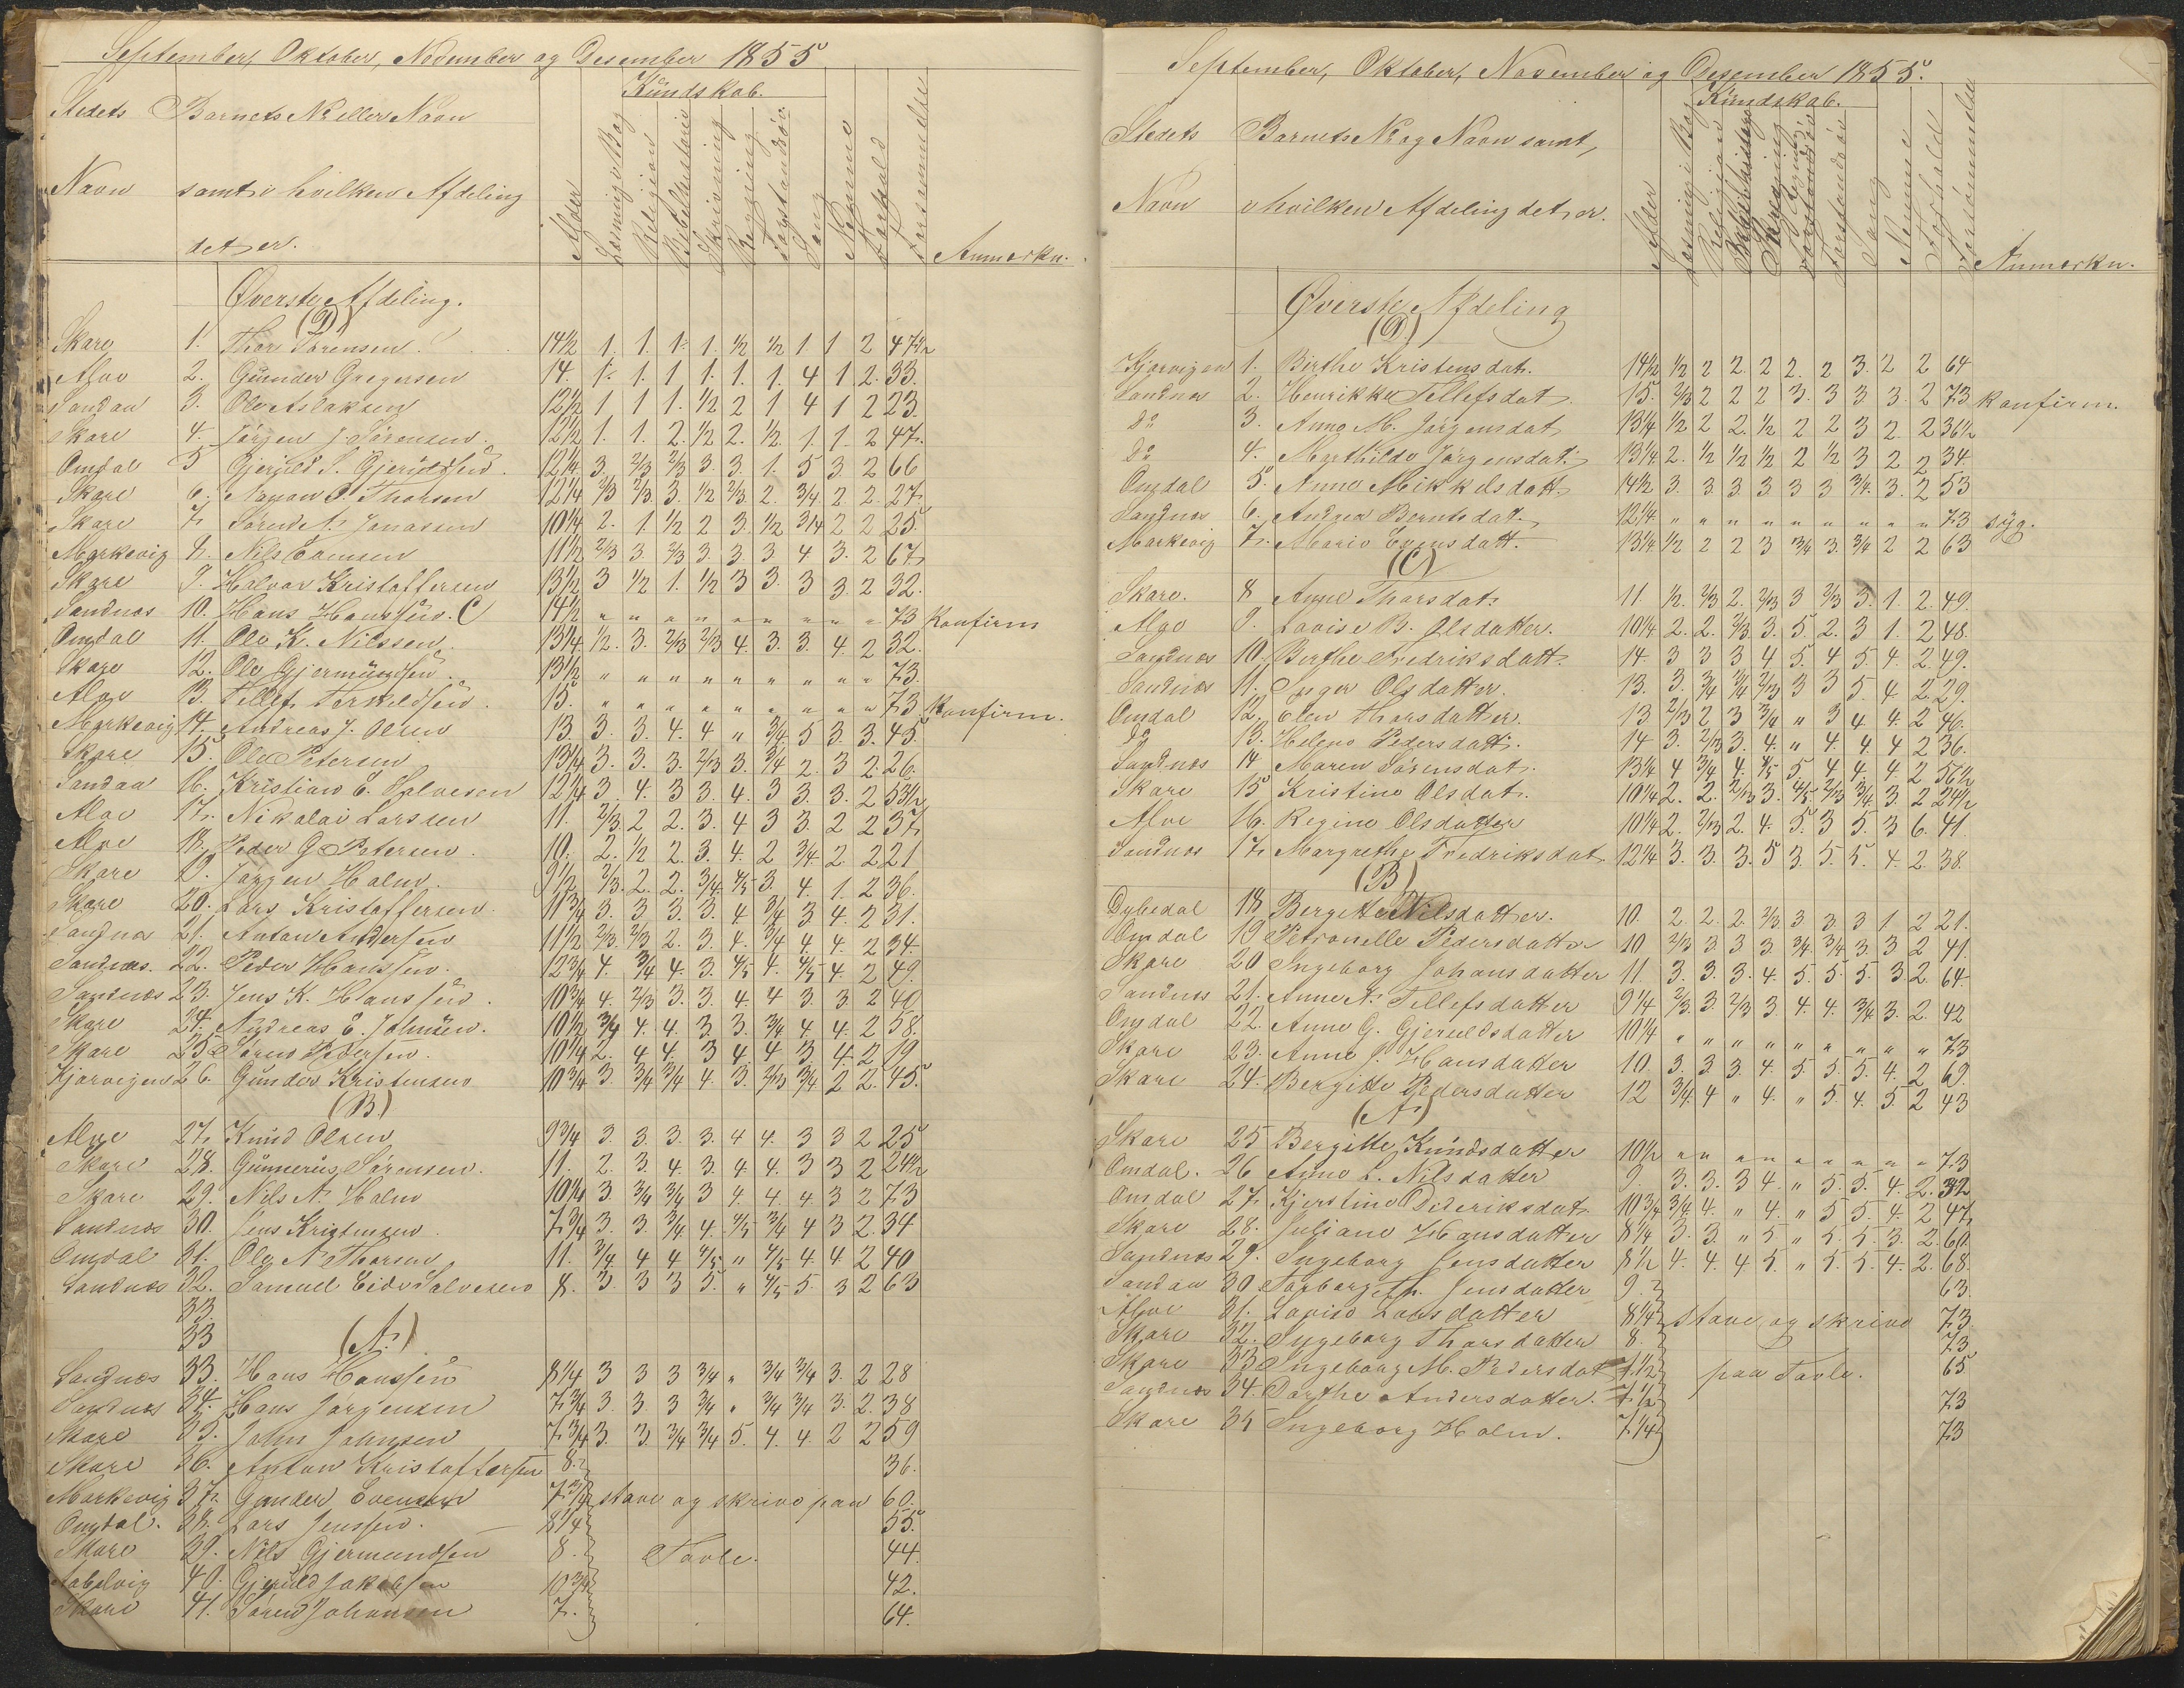 September, Oktober, November og Desember 1855
Stedets Barnets No eller Navn Kundskab.
Navn samt i hvilken Afdeling
det er. Alder Læsning i Bog Religion Bibelhistorie Skrivning Regning Sang Nemme Forhold Forsømmelse Anmerkn.
Øverste Afdeling.
(D)
Skare 1. Thor Sørensen 14 1/2 1. 1. 1. 1. 1/2 1/2 1 1 2 47 1/2
Alve 2. Gunder Gregersen 14. 1. 1. 1 1. 1. 1. 4 1 2. 33.
Sandaa 3. Ole Aslaksen 12 1/2 1 1 1. 1/2 2 1 4 1 2 23.
Skare 4. Jörgen J. Sörensen 12 1/2 1. 1. 2. 1/2 2. 1/2 1. 1. 2 47.
Omdal 5 Gjeruld S. Gjeruldsen. 12 1/4 3. 2/3 2/3 3 3. 1. 5 3. 2 66
Skare 6. Thorsen 12 1/4 2/3 2/3. 3. 1/2 2/3 2. 3/4 2 2. 27.
Skare 7. Sören A. Jonassen 10 1/4 2. 1. 1/2 2 3. 1/2 3/4 2 2 25
Markevig 8. Nils Evensen 11 1/2 2/3 3 2/3 3. 3 3 4 3. 2 67.
Skare 9. Halvor Kristoffersen 13 1/2 3 1/2 1. 1/2 3 3. 3 3. 2 32.
Sandnæs 10. Hans Hanssen. C 14 1/2 " " " " " " " " " 73 Konfirm
Omdal 11. Ole K. Nilssen. 13 1/4 1/2. 3. 2/3 2/3 4. 3. 3. 4. 2 32.
Skare 12. Ole Gjermundsen. 13 1/2 " " " " " " " " " 73.
Alve 13. Tellef Terkeldsen. 15. " " " " " " " " " 73 Konfirm.
Markevig 14. Andreas J. Olsen 13 3. 3. 4. 4 " 3/4 5 3. 3. 45.
Skare 15. Ole Petersen 13 1/4 3. 3. 3. 2/3 3. 3/4 2. 3 2. 26.
Sandaa 16. Kristian E. Salvesen 12 1/4 3. 4. 3 3. 4. 3 3. 3. 2 53 1/2
Alve 17. Nikolai Larssen 11. 2/3. 2 2. 3. 4 3 3. 2 2 37.
Alve 18. Peder G. Petersen. 10. 2. 1/2 2. 3. 4. 2 3/4 2 2 21
Skare 19. Jörgen Holm. 9 1/2 2/3. 2. 2. 3/4. 4/5 3. 4. 1. 2 36.
Skare 20. Lars Kristoffersen. 11 3/4 3. 3. 3. 3. 4 3/4 3 4. 2 31.
Sandnæs 21. Anton Andersen 11 1/2 2/3. 2/3 2. 3. 4. 3/4 4 4. 2 34.
Sandnæs. 22. Peder Hanssen. 12 3/4 4. 3/4 4. 3. 4/5 4. 4/5 4. 2 49.
Sandnæs 23. Jens K. Hanssen. 10 3/4 4. 2/3 3. 3. 4. 4 3. 3. 2 40
Skare 24. Andreas E. Johnsen. 10 1/2 3/4 4. 4. 3. 3. 3/4 4 4. 2 58.
Skare 25 Sören Pedersen. 10 1/4 2. 4 4. 3 4. 4 3. 4. 2 19
Kjørvigen 26. Gunder Kristensen 10 3/4 3. 3/4 3/4 4. 3. 2/3 3/4 2 2. 45.
(B)
Alve 27. Knud Olsen 9 3/4 3. 3. 3. 3. 4 4. 3 3 2 25
Skare 28. Gunnerius Sörensen. 11. 2. 3. 4. 3. 4. 4. 3 3 2 24 1/2
Skare 29. Nils A. Holm 10 1/4 3. 3/4 3/4 3 4. 4. 4 3 2 73
Sandnæs 30. Jens Kristensen. 7 3/4 3. 3. 3/4 4. 4/5 3/4 4 3 2. 34
Omdal 31. Ole N. Thorsen 11. 3/4 4 4 4/5 " 4/5 4 4 2 40
Sandnæs 32. Samuel Eide Salvesen 8. 3. 3 3 5. " 4/5 5. 3 2 63
33.
33 (A.)
Sandnæs 33. Hans Hanssen 8 1/4 3 3 3 3/4 " 3/4 3/4 3. 2 28
Sandnæs 34. Hans Jörgensen 7 3/4 3. 3. 3 3/4 " 3/4 3/4 3. 2. 38
Skare 35. John Johnsen 7 3/4 3. 3. 3/4 3/4 5. 4. 4. 2 2 59
Skare 36. Anton Kristoffersen 8. 36.
Markevig 37. Gunder Evensen 7 3/4 stave og skrive paa 60.
Omdal. 38. Lars Jenssen. 8 1/4 55.
Skare 39. Nils Gjermundsen 8. Tavle. 44.
40. Gjeruld Jakobsen 10 3/4 42.
Skare 41. Sören Johansen 7. 64.
September, Oktober, November og Desember 1855.
Stedets Barnets No og Navn samt, Kundskab.
Navn i hvilken Afdeling det er. Alder Læsning i Bog Religion Sang Nemme Forhold Forsømmelse Anmerkn.
Øverste Afdeling
(D)
Kjørvigen 1. Birthe Kristensdat. 14 1/2 1/2 2 2. 2 2. 2 3. 2 2 64
Sandnæs 2. Henrikke Tellefsdat. 15. 2/3 2 2 2 3. 3 3 3. 2 73 Konfirm.
Do 3. Anne M. Jörgensdat 13 1/4 1/2 2 2. 1/2 2 2 3 2. 2 36 1/2
Do 4. Marthilde Jörgensdat. 13 1/4 2. 1/2 1/2 1/2 2 1/2 3 2 2 34
Omdal 5. Anne Mikkelsdatt. 14 1/2 3. 3. 3. 3. 3 3 3/4. 3. 2 53
Sandnæs 6. Andrea Berntsdat. 12 1/4. " " " " " " " " " 73 syg.
Markevig 7. Marie Evensdatt. 13 1/4 1/2 2 2 3 3/4 3. 3/4 2 2 63
(C)
Skare. 8 Anne Thorsdat. 11. 1/2. 2/3 2. 2/3 3 2/3 3. 1. 2. 49.
Alve 9. Lovise B. Olsdatter. 10 1/4 2. 2. 2/3 3. 5. 2. 3 1. 2 48.
Sandnæs 10. Berthe Fredriksdatt. 14 3 3 3 4 5. 4 5. 4. 2. 49.
Sandnæs 11. Inger Olsdatter. 13. 3. 3/4 3/4 2/3 3 3 5. 4. 2. 29.
Omdal 12. Elen Thorsdatter. 13 2/3 2 3 3/4 " 3 4. 4. 2 46.
Do 13. Helene Pedersdatt. 14 3. 2/3 3. 4. " 4. 4. 4 2 36.
Sandnæs 14 Maren Sörensdat. 13 1/4 4 3/4 4. 4/5 5. 4 4. 4. 2 56 1/2
Skare 15 Kristine Olsdat. 10 1/4 2. 2. 2/3 3. 4/5 2/3 3/4 3. 2 24 1/2
Alve 16. Regine Olsdatter 10 1/4 2. 2/3 2. 4. 5. 3 5. 3 6. 41.
Sandnæs 17. Margrethe Fredriksdat 12 1/4 3. 3. 3. 5 3. 5. 5. 4. 2. 38.
(B)
Dybedal 18 Bergitte Nilsdatter. 10. 2. 2. 2. 2/3 3 3. 3 1 2 21.
Omdal 19 Petronelle Pedersdatter 10 2/3 3 3 3. 3/4. 3/4 3. 3 2 41.
Skare 20 Ingeborg Johansdatter 11. 3. 3. 3. 4. 5. 5. 5. 3 2. 64.
Sandnæs 21. Anne N. Tellefsdatter 9 1/4 2/3. 3. 2/3 3. 4. 4. 3/4 3. 2. 42
Omdal 22. Anne G. Gjeruldsdatter 10 1/4 " " " " " " " " " 73
Skare 23. Anne J. Hansdatter 10. 3. 3. 3. 4. 5. 5. 5. 4. 2 69.
Skare 24. Bergitte Pedersdatter 12 3/4. 4 " 4. " 5. 4. 5. 2 43
(A.)
Skare 25 Bergitte Knudsdatter 10 1/2 " " " " " " " " " 73
Omdal. 26 Anne L. Nilsdatter 9. 3. 3. 3 4. " 5. 5. 4. 2. 32
Omdal 27. Kjerstine Dideriksdat. 10 3/4 3/4 4. " 4. " 5 5. 4. 2 47.
Skare 28. Juliane Hansdatter 8 1/4 3. 3. " 5 " 5. 5. 3. 2. 60.
Sandnæs 29. Ingeborg Jensdatter 8 1/2 4. 4. 4 5. " 5. 5. 4. 2. 68.
Sandaa 30 Torborg Th. Jensdatter 9. 63.
Alve 31. Lovise Larsdatter 8 1/4 stave og skrive 73
Skare 32. Ingeborg Thorsdatter 8. 73
Skare 33 Ingeborg M. Pedersdat 7 1/2 paa Tavle. 65
Sandnæs 34. Dorthe Andersdatter. 7 1/2 73
Skare 35 Ingeborg Holm. 7 1/4 73